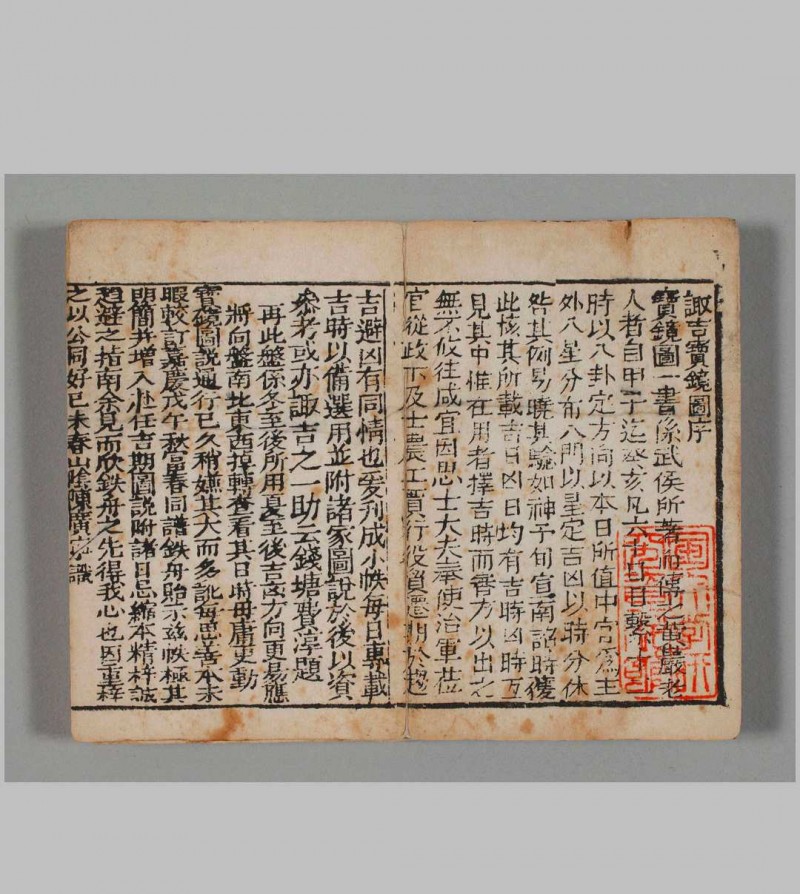 諏吉寶鏡圖序
寶鏡圖一書係武侯所著而傳之黃嚴老
人者自甲子迄癸亥凡六十日日繫十二
時以八卦定方向以本日所值中宮爲主
外八星分布八門以星定吉凶以時分休
咎其例易曉其驗如神予旬宣南詔時獲
此核其所載吉日凶日均有吉時凶時互
見其中惟在用者擇吉時而審方以出之
無不攸往咸宜因思士大夫奉使治軍莅
官從政下及士農工賈行役貿遷期於趨
吉避凶有同情也爰刋成小帙每日專載
吉時以備選用並附諸家圖說於後以資
叅考或亦諏吉之一助云錢塘費淳題
再此盤係冬至後所用夏至後吉凶方向更易應
將向盤南北東西掉轉查看其日時毋庸更動
寶鏡圖說通行已久稍嫌其大而多訛每思善本未
暇較訂嘉慶戊午秋星春同譜鉄舟貽示兹帙極其
明簡并增入赴任吉期圖說附諸日忌縮本精梓誠
趋避之指南余見而欣鉄舟之先得我心也因重梓
之以公同好己未春山陰陳廣 識